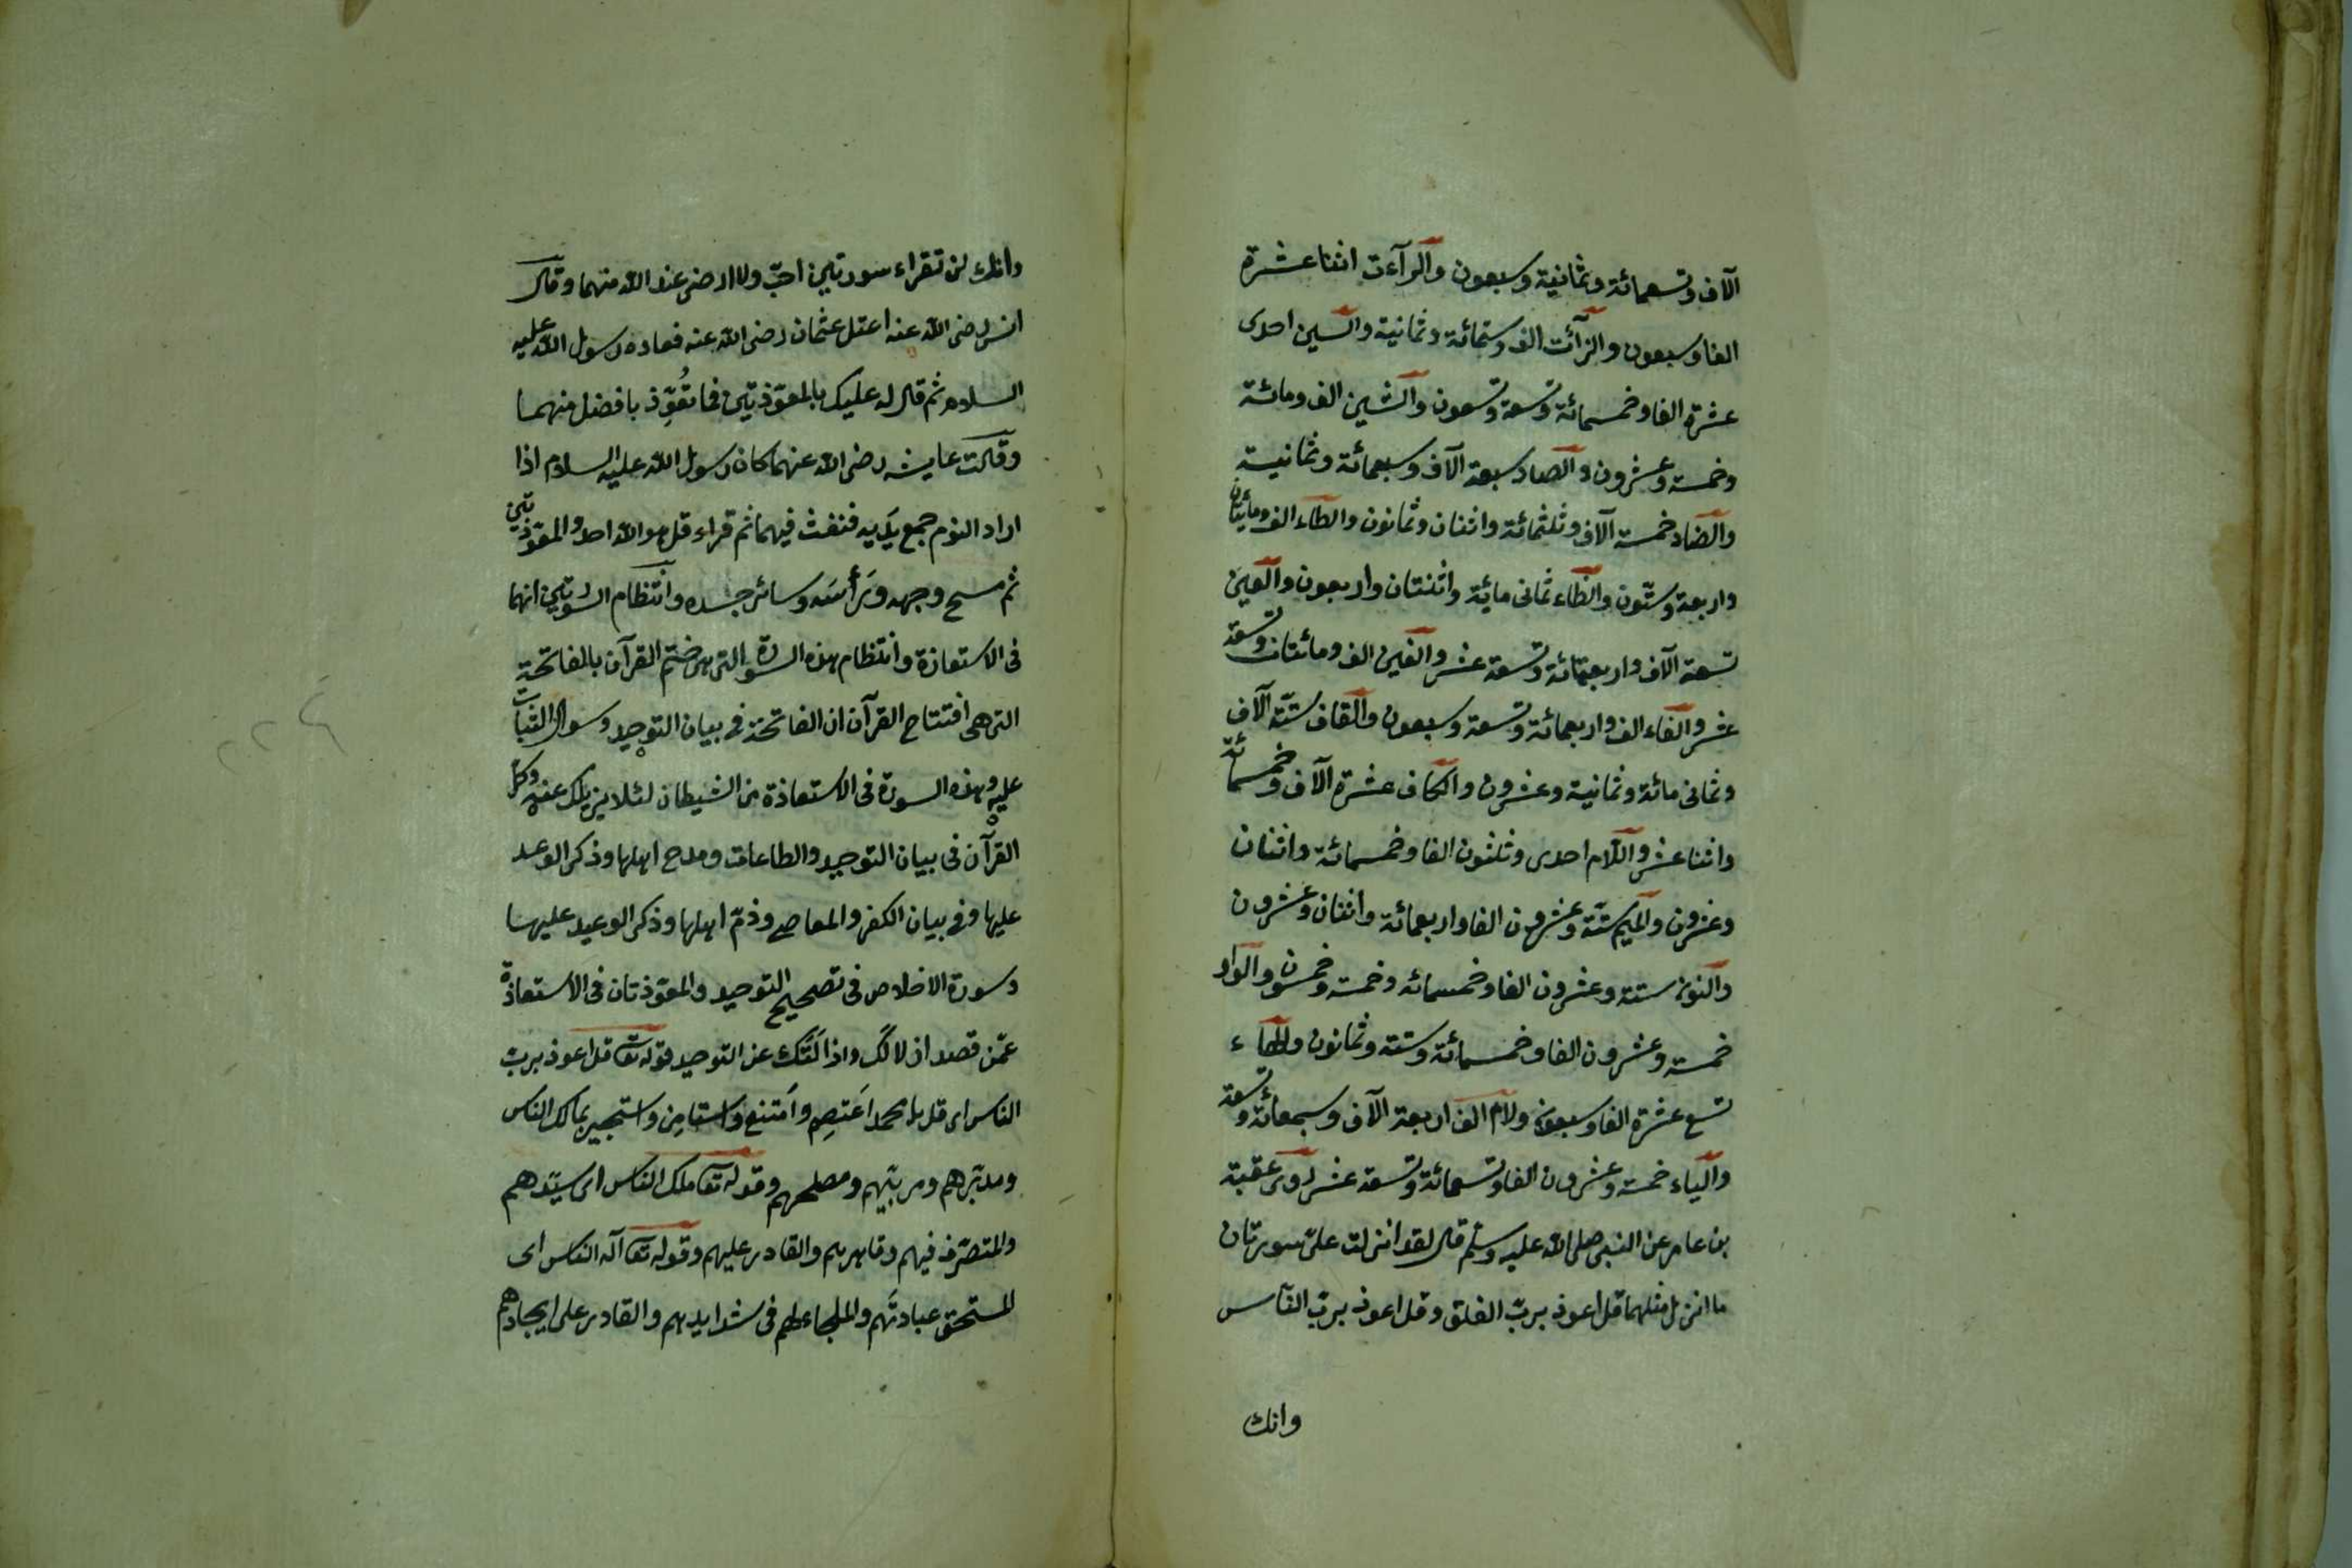 آلاف وتسعمائة وثمانية وسبعون والرآءت اثنا عشرة
الفا وسبعون والزآئت الف وستمائة وثمانية والسين احدى
عشرة الفا وخمسمائة وتسعة وتسعون والشين الف ومائة
وخمسة وعشرون والصاد سبعة آلاف وسبعمائة وثمانية
والضاد خمسة آلاف وثلثمائة واثنان وثمانون والطاء الف ومائتان
واربعة وستون والظاء ثمانى مائة واثنتان واربعون والعين
تسعة آلاف واربعمائة وتسعة عشر والغين الف ومائتان وتسعة
عشر والفاء الف واربعمائة وتسعة وسبعون والقاف ستة آلاف
وثمانى مائة وثمانية وعشرون والكاف عشرة آلاف وخمسمائة
واثنا عشر واللام احدى وثلثون الفا وخمسمائة واثنان
وعشرون والميم ستة وعشرون الفا واربعمائة واثنان وعشرون
والنون ستة وعشرون الفا وخمسمائه وخمسة وخمسون والواو
خمسة وعشرون الفا وخمسمائة وستة وثمانون والهاء
تسع عشرة الفا وسبعون ولام الف اربعة آلاف وسبعمائة وتسعة
والياء خمسة وعشرون الفا وتسعمائة وتسعة عشر روى عقبة
بن عامر عن النبى صلى الله عليه وسلم قال لقد انزلت علىّ سورتان
ما انزل مثلهما قل اعوذ بربّ الفلق وقل اعوذ بربّ الناس
وانك
وانك لن تقراء سورتين احبّ ولا ارضى عند الله منهما وقال
انس رضى الله عنه اعتل عثمان رضى الله عنه فعاده رسول الله عليه
السلام ثم قال له عليك بالمعوّذتين فما تُعوِّذ بافضل منهما
وقالت عايشه رضى الله عنهما كان رسول الله عليه السلام اذا
اراد النوم جمع يَدَيه فنفث فيهما ثم قراء قل هو الله احد والمعوّذتين
ثم مسح وجهه ورَأسَه وسائر جسده وانتظام السورتين انهما
فى الاستعاذة وانتظام هذه السورة التى هى ختم القرآن بالفاتحة
التى هى افتتاح القرآن ان الفاتحة فى بيان التوحيد وسوال الثبات
عليه وهذه السورة فى الاستعاذة من الشيطان لئلا يزيلك عنه وكل
القرآن فى بيان التوحيد والطاعات ومدح اهلها وذكر الوعد
عليها وفى بيان الكفر والمعاصى وذمّ اهلها وذكر الوعيد عليها
وسورة الاخلاص فى تصحيح التوحيد والمعوّذتان فى الاستعاذة
عمّن قصد ازلالك واذا لتك عن التوحيد قوله تعا قل اعوذ بربّ
الناس اى قل يا محمد اعتصِم وامتنع واستامِن واستجير بمالك الناس
ومدبّرهم ومربّيهم ومصلحهم وقوله تعا ملك الناس اى سيّدهم
والمتصرّف فيهم وقاهرهم والقادر عليهم وقوله تعا آله الناس اى
المستحق عبادتَهم والملجاء لهم فى شدايدهم والقادر على ايجادهم